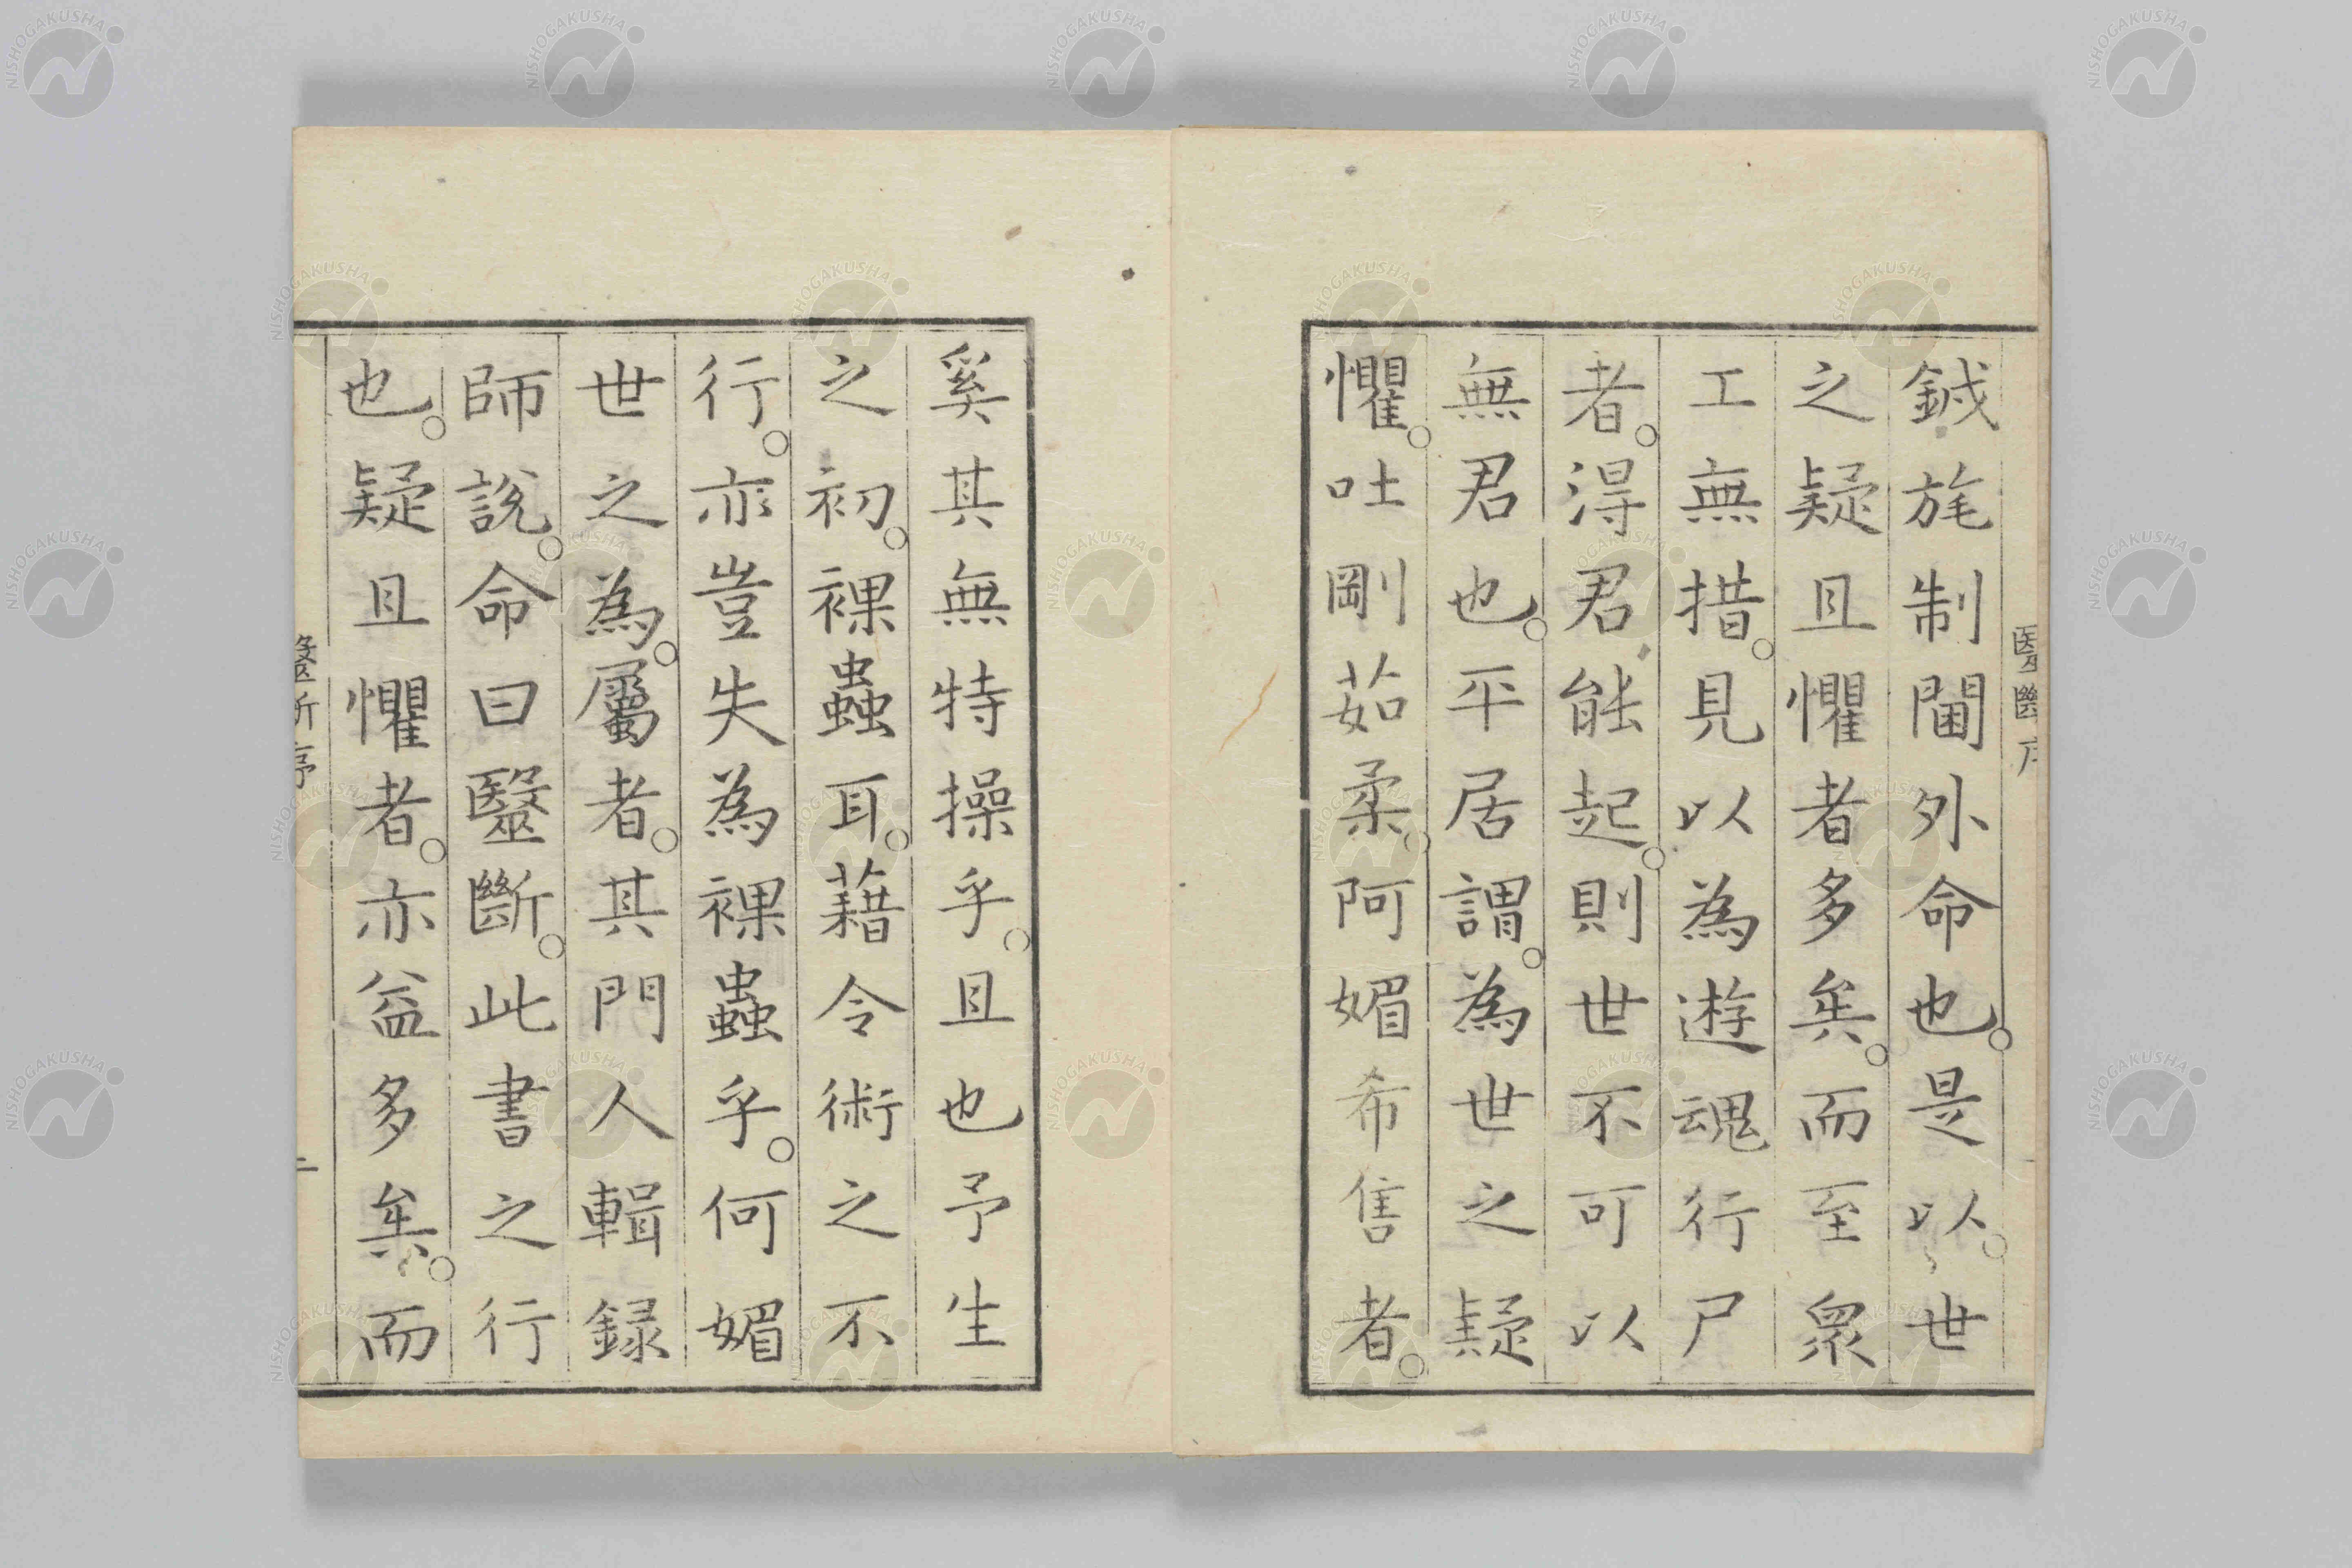 醫斷序
鉞旄制閫外命也。是以。世
之疑且懼者多矣。而至衆
工無措。見以為遊魂行尸
者。得君能起。則世不可以
無君也。平居謂。為世之疑
懼。吐剛茹柔。阿媚希售者。
奚其無特操乎。且也予生
之初。裸蟲耳。藉令術之不
行。亦豈失為裸蟲乎。何媚
世之為。屬者。其門人輯録
師說。命曰醫斷。此書之行
也。疑且懼者。亦益多矣。而
醫斷序
二
NISHOGAKUSHA